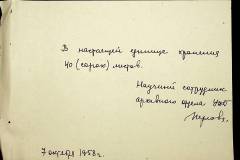 В настоящей единице хранения
40 (сорок) листов.
Научный сотрудник
архивного отдела
7 октября 1958 г.